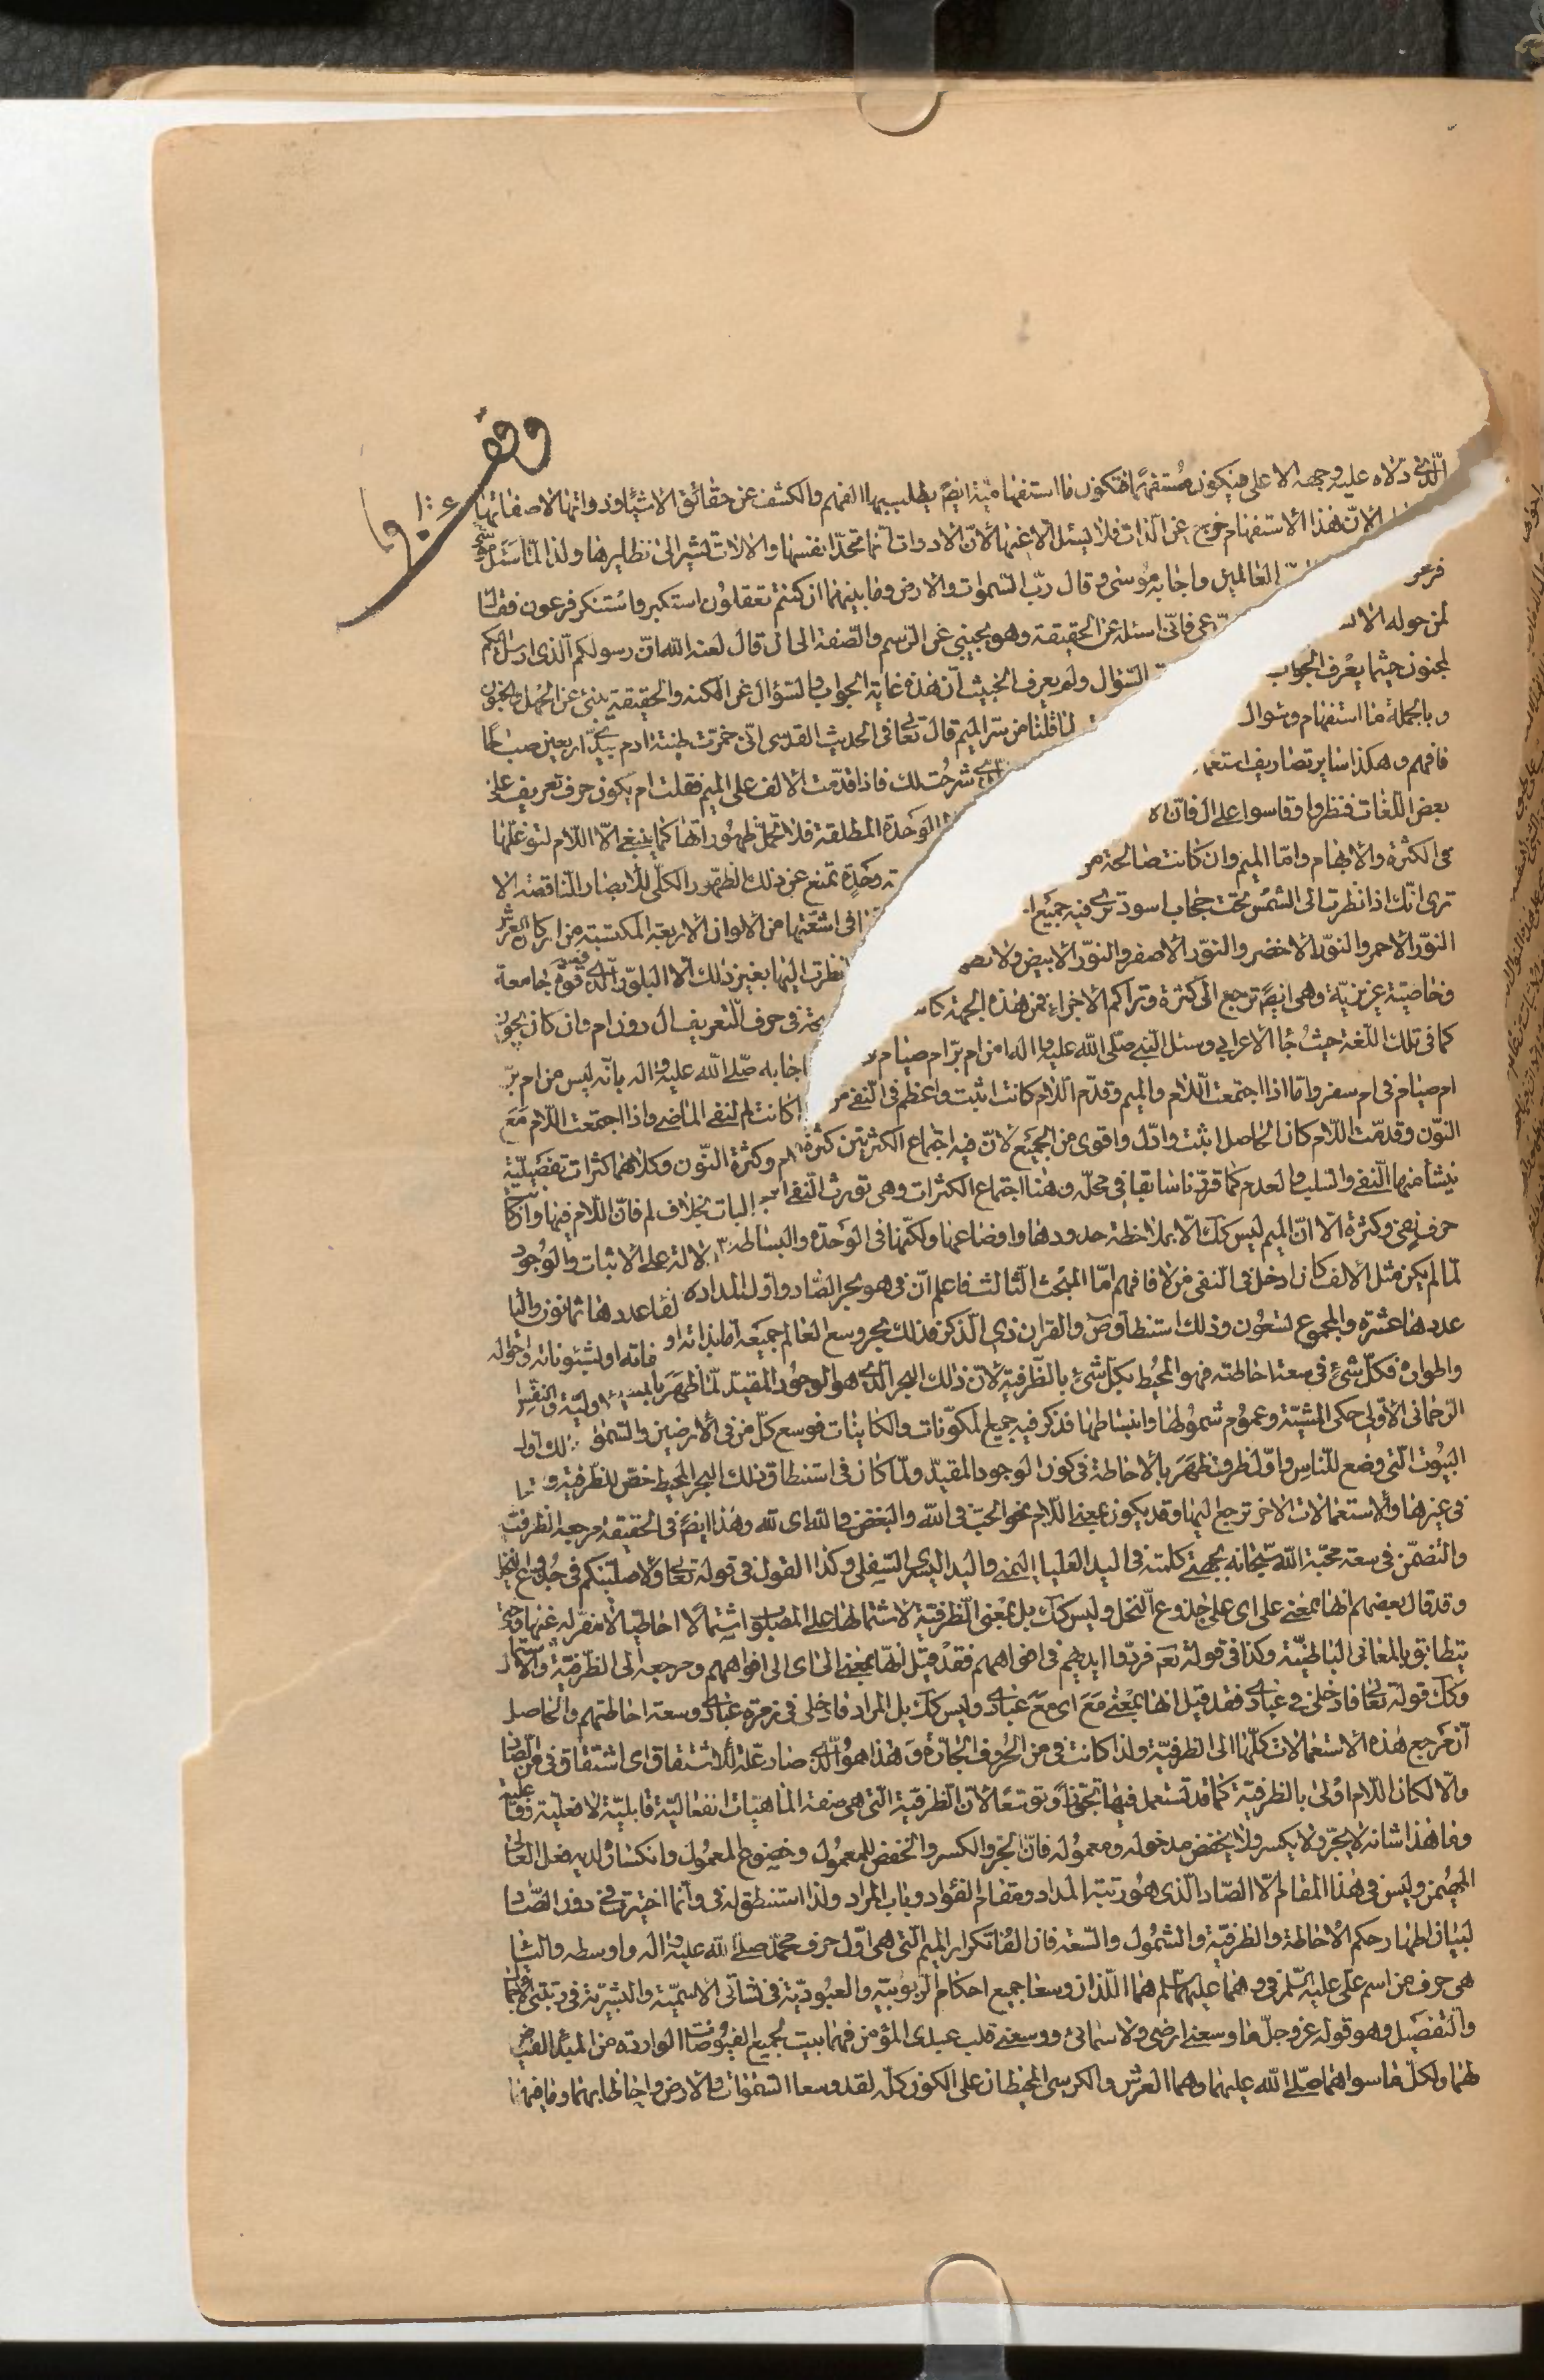 وقف
الذي دلاه عليه وجهه الاعلى فيكون مستفهما فتكون ما استفهامية ايض يطلب بها الفهم والكشف عن حقائق الاشياء وذواتها لا صفاتها
الا ان هذا الاستفهام خرج عن الذات فلا يسئل الا عنها لان الادوات انما تحد انفسها والالات تشير الى نظايرها ولذا لما سئل
فرعو العالمين واجابه موسى وقال رب السموات والارض وما بينهما ان كنتم تعقلون استكبر واستنكر فرعون فقال
لمن حوله الا عى فانى اسئله عن الحقيقة وهو يجيبني عن الرسم والصفة الى ان قال لعنه الله ان رسولكم الذى ارسل اليكم
لمجنون حيثما يعرف الجواب السؤال ولم يعرف الخبيث ان هذه غاية الجواب والسؤال عن الكنه والحقيقة ينبئ عن الجهل والجنون
وبالجملة ما استفهام وسوال لما قلنا من سر الميم قال تعالى في الحديث القدسى انى خمرت طينة ادم بيدى اربعين صباحا
فافهم وهكذا ساير تصاريف استعما شرحت لك فاذا قدمت الالف على الميم فقلت ام يكون حرف تعريف على
بعض اللغات فنظروا وقاسوا على ال فان الا الوحدة المطلقة فلا تحمل ظهوراتها كما ينبغي الا اللام لتوغلها
في الكثرة والابهام واما الميم وان كانت صالحة من وحدة تمنع عن ذلك الظهور الكلى للابصار الناقصة الا
ترى انك اذا نظرت الى الشمس تحت حجاب اسود ترى فيه جميع ا في اشعتها من الالوان الاربعة المكتسبة من اركان العرش
النور الاحمر والنور الاخضر والنور الاصفر والنور الابيض ولا نظرت اليها بغير ذلك الا البلور الذى فيه قوة جامعة
وخاصية غريزية وهى ايض ترجع الى كثرة وتراكم الاجزاء فمن هذه الجهة كا في حرف التعريف ال دون ام وان كان يجوز
كما في تلك اللغة حيث جاء الاعرابي وسئل النبي صلى الله عليه واله امن ام بر ام صيام اجابه صلى الله عليه واله بانه ليس من ام بر
ام صيام في ام سفر واما اذا اجتمعت اللام والميم وقدم اللام كانت اثبت واعظم في النفي من كانت لم لنفى الماضى واذا اجتمعت اللام مع
النون وقدمت اللام كان الحاصل اثبت وادل واقوى من الجميع لان فيه اجتماع الكثرتين كثرة اللام وكثرة النون وكلاهما كثرات تفصيلية
ينشأ منها النفي والسلب والعدم كما قررنا سابقا في محله وهنا اجتماع الكثرات وهى تورث النفي بخلاف لم فان اللام فيها وان كان
حرف نفى وكثرة الا ان الميم ليس كك الا بملاحظة حدودها واوضاعها ولكنها في الوحدة والبساطة الدلالة على الاثبات والوجود
لما لم يكن مثل الالف كان ادخل في النفي من لا فافهم اما المبحث الثالث فاعلم ان في هو بحر الصاد واول المداد لفاء عددها ثمانون والياء
عددها عشرة والمجموع تسعون وذلك استنطاق ص والقران ذي الذكر فذلك بحر وسع العالم جميعه اما بذاته او او بشئوناته واحواله
واطواره فكل شئ في سعة احاطته فهو المحيط بكل شئ بالظرفية لان ذلك البحر الذى هو الوجود المقيد لما ظهر بالمشية الاولية والنفس
الرحماني الاولي حكى المشية وعموم شمولها وانبساطها فذكر فيه جميع المكونات والكاينات فوسع كل من في الارضين والسموات اول
البيوت التي وضع للناس واول ظرف ظهر بالاحاطة في كون الوجود المقيد ولما كان في استنطاق ذلك البحر المحيط خص للظرفية
في غيرها والاستعمالات الاخر ترجع اليها وقد يكون بمعنى اللام نحو الحب في الله والبغض في الله اى لله وهذا ايض في الحقيقة مرجعه الظرفية
والتضمن في سعة محبة الله سبحانه بجهتى كلمته في اليد العليا اليمنى واليد اليسرى السفلى وكذا القول في قوله تعالى ولاصلبنكم في جذوع النخل
وقد قال بعضهم انها بمعنى على اى على جذوع النخل وليس كك بل بمعنى الظرفية لاشتمالها على المصلوب اشتمالا احاطيا لا مفر له عنها
يتطابق بالمعانى الباطنية وكذا في قوله تعم فردوا ايديهم في افواههم فقد قيل انها بمعنى الى اى الى افواههم ومرجعه الى الظرفية
وكك قوله تعالى فادخلى في عبادى فقد قيل انها بمعنى مع اى مع عبادى وليس كك بل المراد فادخلى في زمرة عبادى وسعة احاطتهم والحاصل
ان مرجع هذه الاستعمالات كلها الى الظرفية ولذا كانت في من الحروف الجارة وهذا هو الذى صار علة للاشتقاق اى اشتقاق في من الصاد
والا لكان اللام اولى بالظرفية كما قد تستعمل فيها تجوزا وتوسعا لان الظرفية التى هى صفة الماهيات انفعالية قابلية لا فعلية
وما هذا شانه لا يجر ولا يكسر ولا يخفض مدخوله ومعموله فان الجر والكسر والخفض للمعمول وخضوع المعمول وانكساره لديه فعل العالى
المهيمن وليس في هذا المقام الا الصاد الذى هو رتبة المداد ومقام الفؤاد وباب المراد ولذا استنطق له في وانما اختيرت في دون الصاد
لبيان اظهار حكم الاحاطة والظرفية والشمول والسعة فان الفا تكرار الميم التى هى اول حرف محمد صلى الله عليه واله واوسطه والياء
هى حرف من اسم على عليه السلم وهما عليهما السلم هما اللذان وسعا جميع احكام الربوبية والعبودية في نشأتى الاسمية والبشرية في رتبتى الاجمال
والتفصيل وهو قوله عز وجل ما وسعنى ارضى ولا سمائى ووسعنى قلب عبدى المؤمن فهما بيت لجميع الفيوضات الواردة من المبدء الفياض
لهما ولكل ما سواهما صلى الله عليهما وهما العرش والكرسى المحيطان على الكون كله لقد وسعا السموات والارض واحاطا بهما وما فيهما